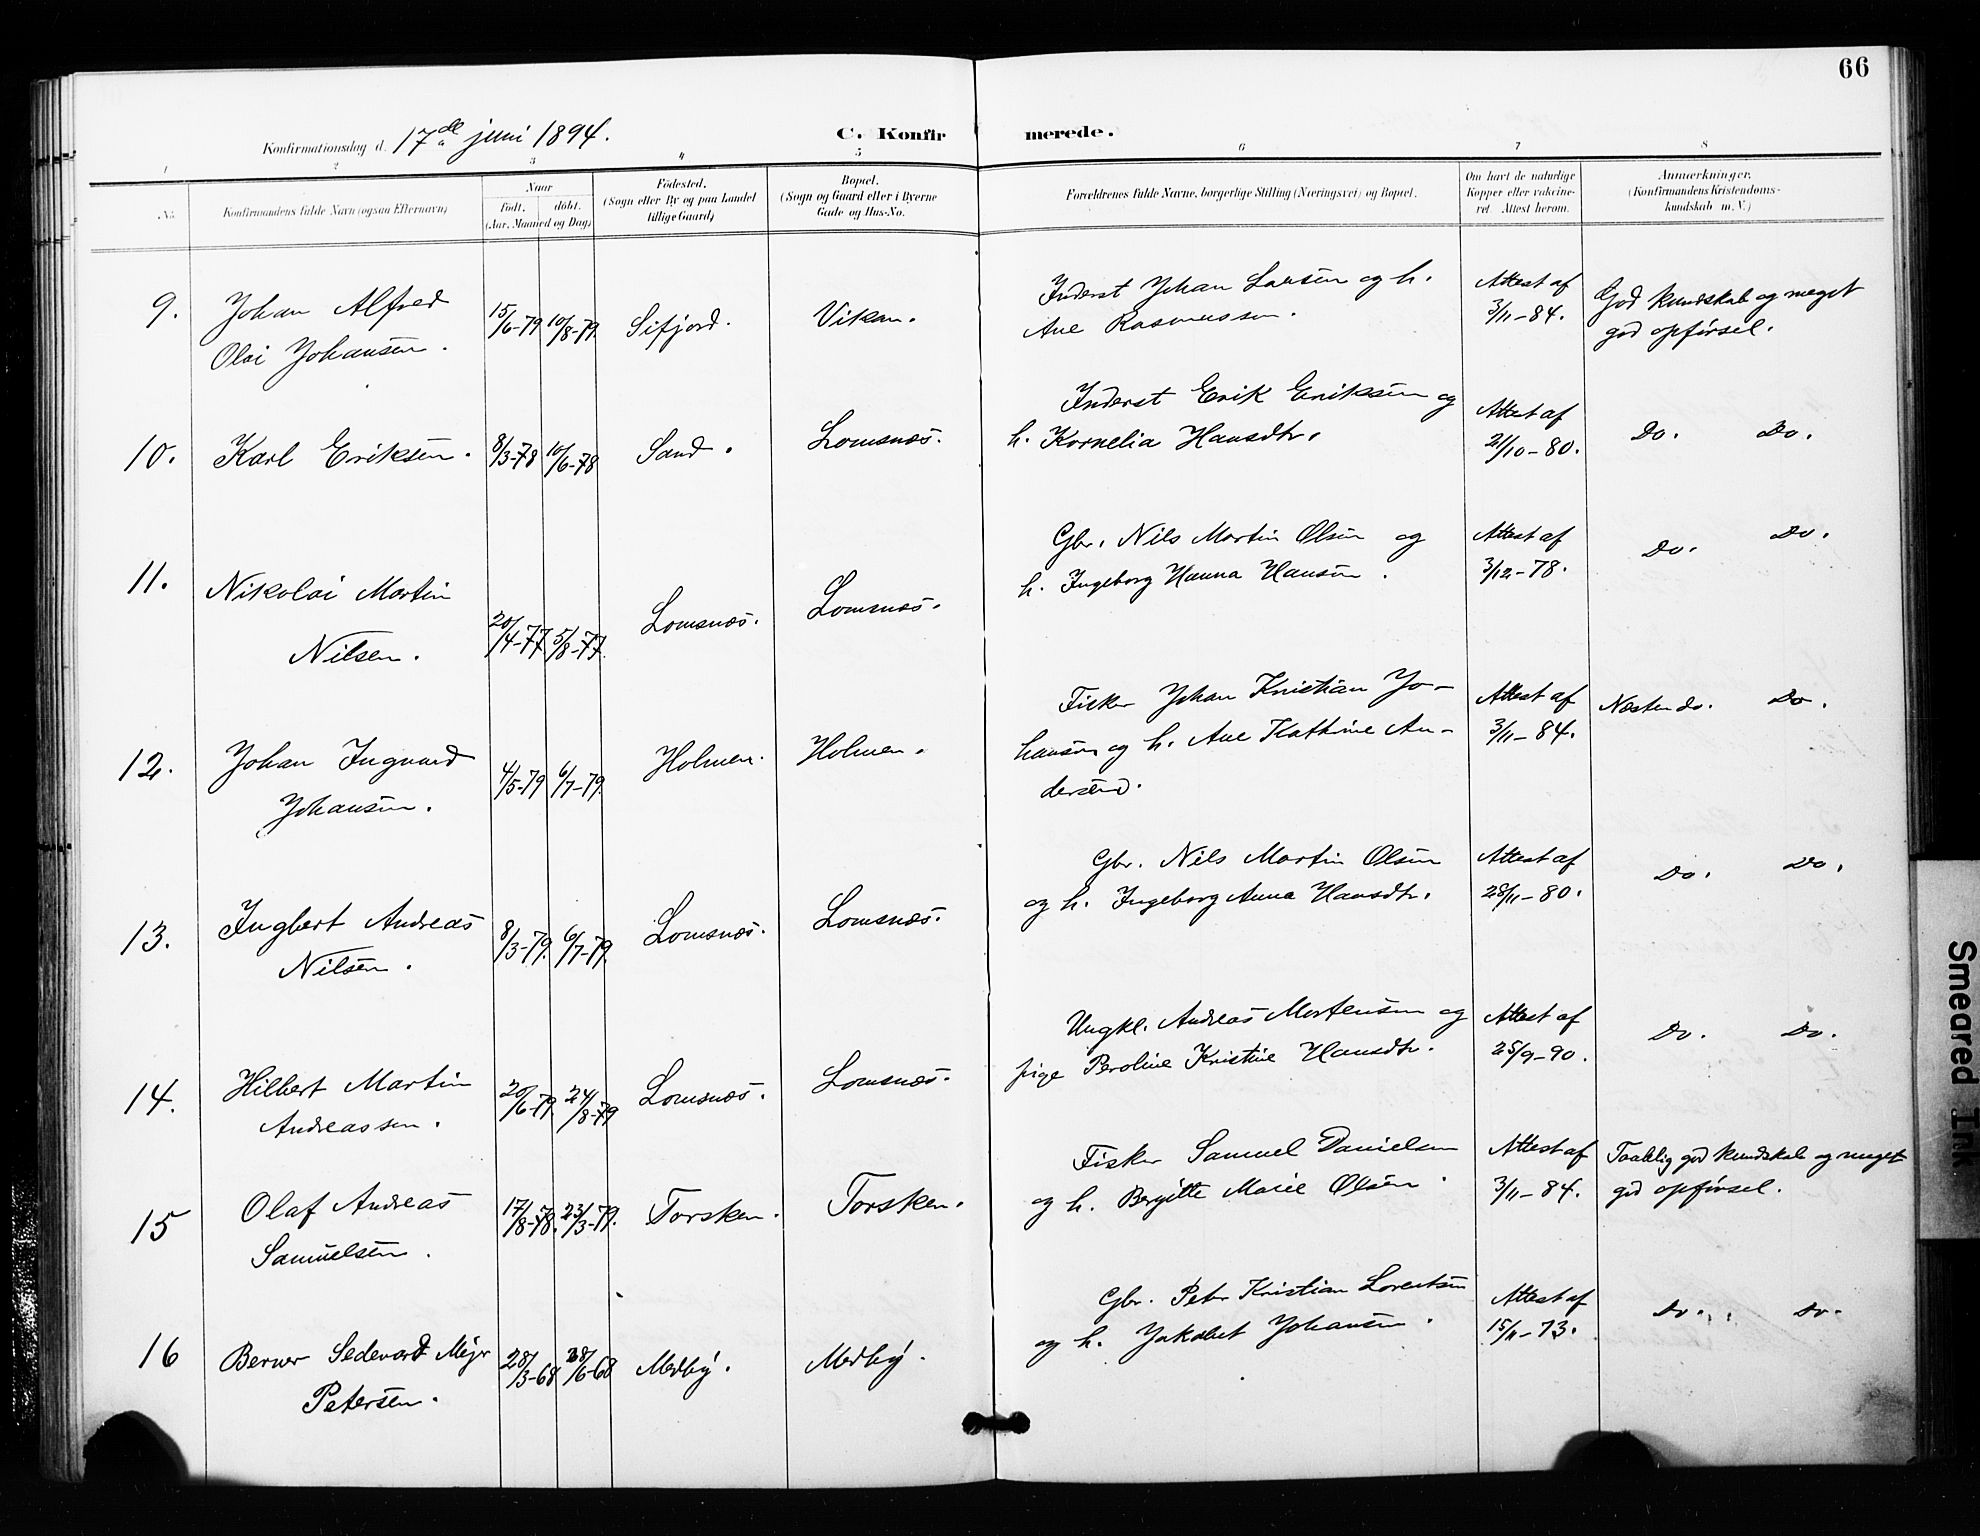 66
Konfirmationsdag d. 17de juni 1894.
C. Konfirmerede.
1 2 3 4 5 6 7 8
No.
Konfirmandens fulde Navn (ogsaa Efternavn)
Naar
født. døbt.
(Aar, Maaned og Dag)
Fødested.
(Sogn eller By og paa Landet
tillige Gaard)
Bopæl.
(Sogn og Gaard eller i Byerne
Gade og Hus-No.
Forældrenes fulde Navne, borgerlige Stilling (Næringsvei) og Bopæl.
Om havt de naturlige
Kopper eller vaccineret.
Attest herom.
Anmærkninger.
(Konfirmandens Kristendomskundskab
m. V.)
9. Johan Alfred
Olai Johansen.
15/6-79 10/8-79. Sifjord. Vikan.
Inderst Johan Larsen og h.
Ane Rasmussen.
Attest af
3/11-84.
God kundskab og meget
god opførsel.
10. Karl Eriksen. 8/3-78 10/6-78 Sand. Lomsnæs.
Inderst Erik Eriksen og
h. Kornelia Hansdtr.
Attest af
21/10-80.
Do. Do.
11. Nikolai Martin
Nilsen.
20/4-77 5/8-77. Lomsnæs. Lomsnæs.
Gbr. Nils Martin Olsen og
h. Ingeborg Hanna Hansen.
Attest af
3/12-78.
Do. Do.
12. Johan Ingvard
Johansen.
4/5-79 6/7-79. Holmen. Holmen.
Fisker Johan Kristian Jo-
hansen og h. Ane Kathrine An-
dersen.
Attest af
3/11-84.
Næsten do. Do.
13. Ingbert Andreas
Nilsen.
8/3-79. 6/7-79. Lomsnæs. Lomsnæs.
Gbr. Nils Martin Olsen
og h. Ingeborg Anna Hansdtr.
Attest af
28/11-80.
Do. Do.
14. Hilbert Martin
Andreassen.
20/6-79. 24/8-79 Lomsnæs. Lomsnæs.
Ungkl. Andreas Mortensen og
pige Peroline Kristine Hansdtr.
Attest af
25/9-90.
Do. Do.
15 Olaf Andreas
Samuelsen.
17/8-78. 23/3-79. Torsken. Torsken.
Fisker Samuel Danielsen
og h. Bergitte Marie Olsen.
Attest af
3/11-84.
Taalelig god kundskab og meget
god opførsel.
16 Berner Sedevard Mejer
Petersen.
28/3-68 28/6-68 Medby. Medby.
Gbr. Peter Kristian Lorentsen
og h. Jakobet Johansen.
Attest af
15/11-73.
Do. Do.
Smeared Ink